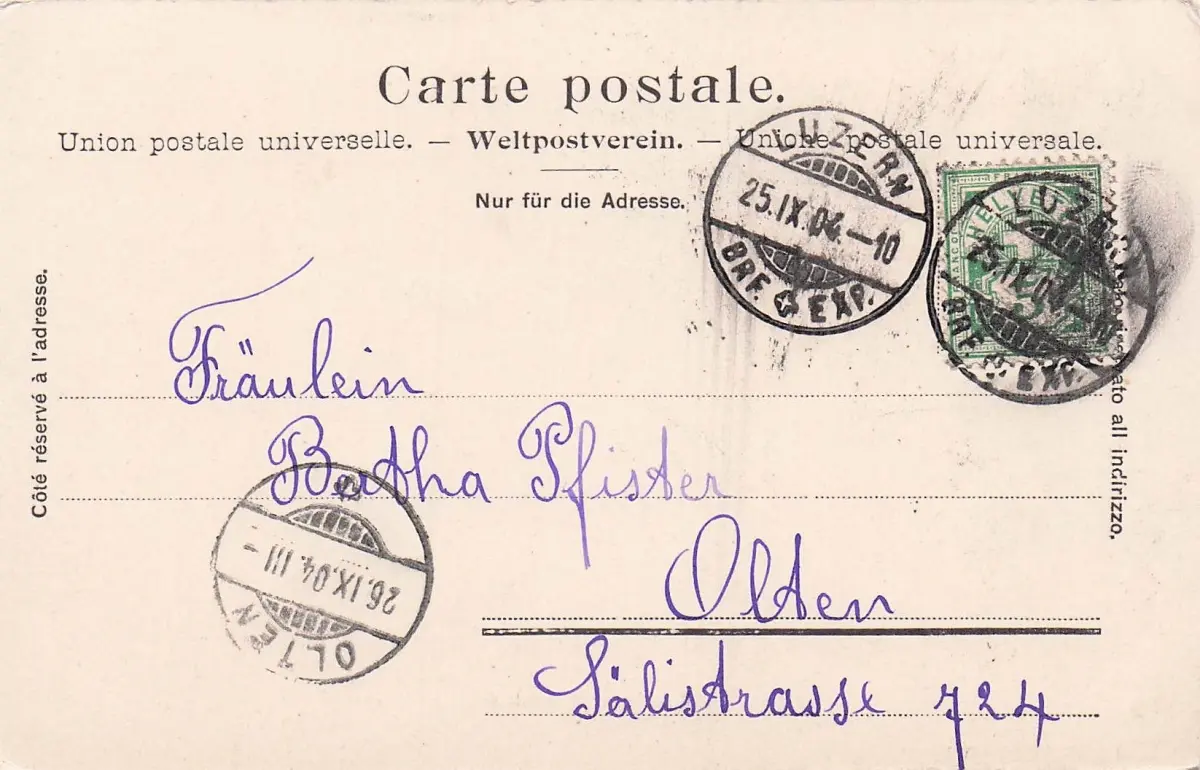 Carte postale.
Union postale universelle. — Weltpostverein. — Unione postale universale.
Nur für die Adresse.
Côté réservé à l'adresse.
LUZERN
25.IX.04.—10
BRF. EXP.
HELVETIA
FRANCO
LUZERN
25.IX.04.—10
BRF. EXP.
lato all indirizzo.
Fräulein
Bertha Pfister
Olten
Sälistrasse 724
OLTEN
26.IX.04. III –